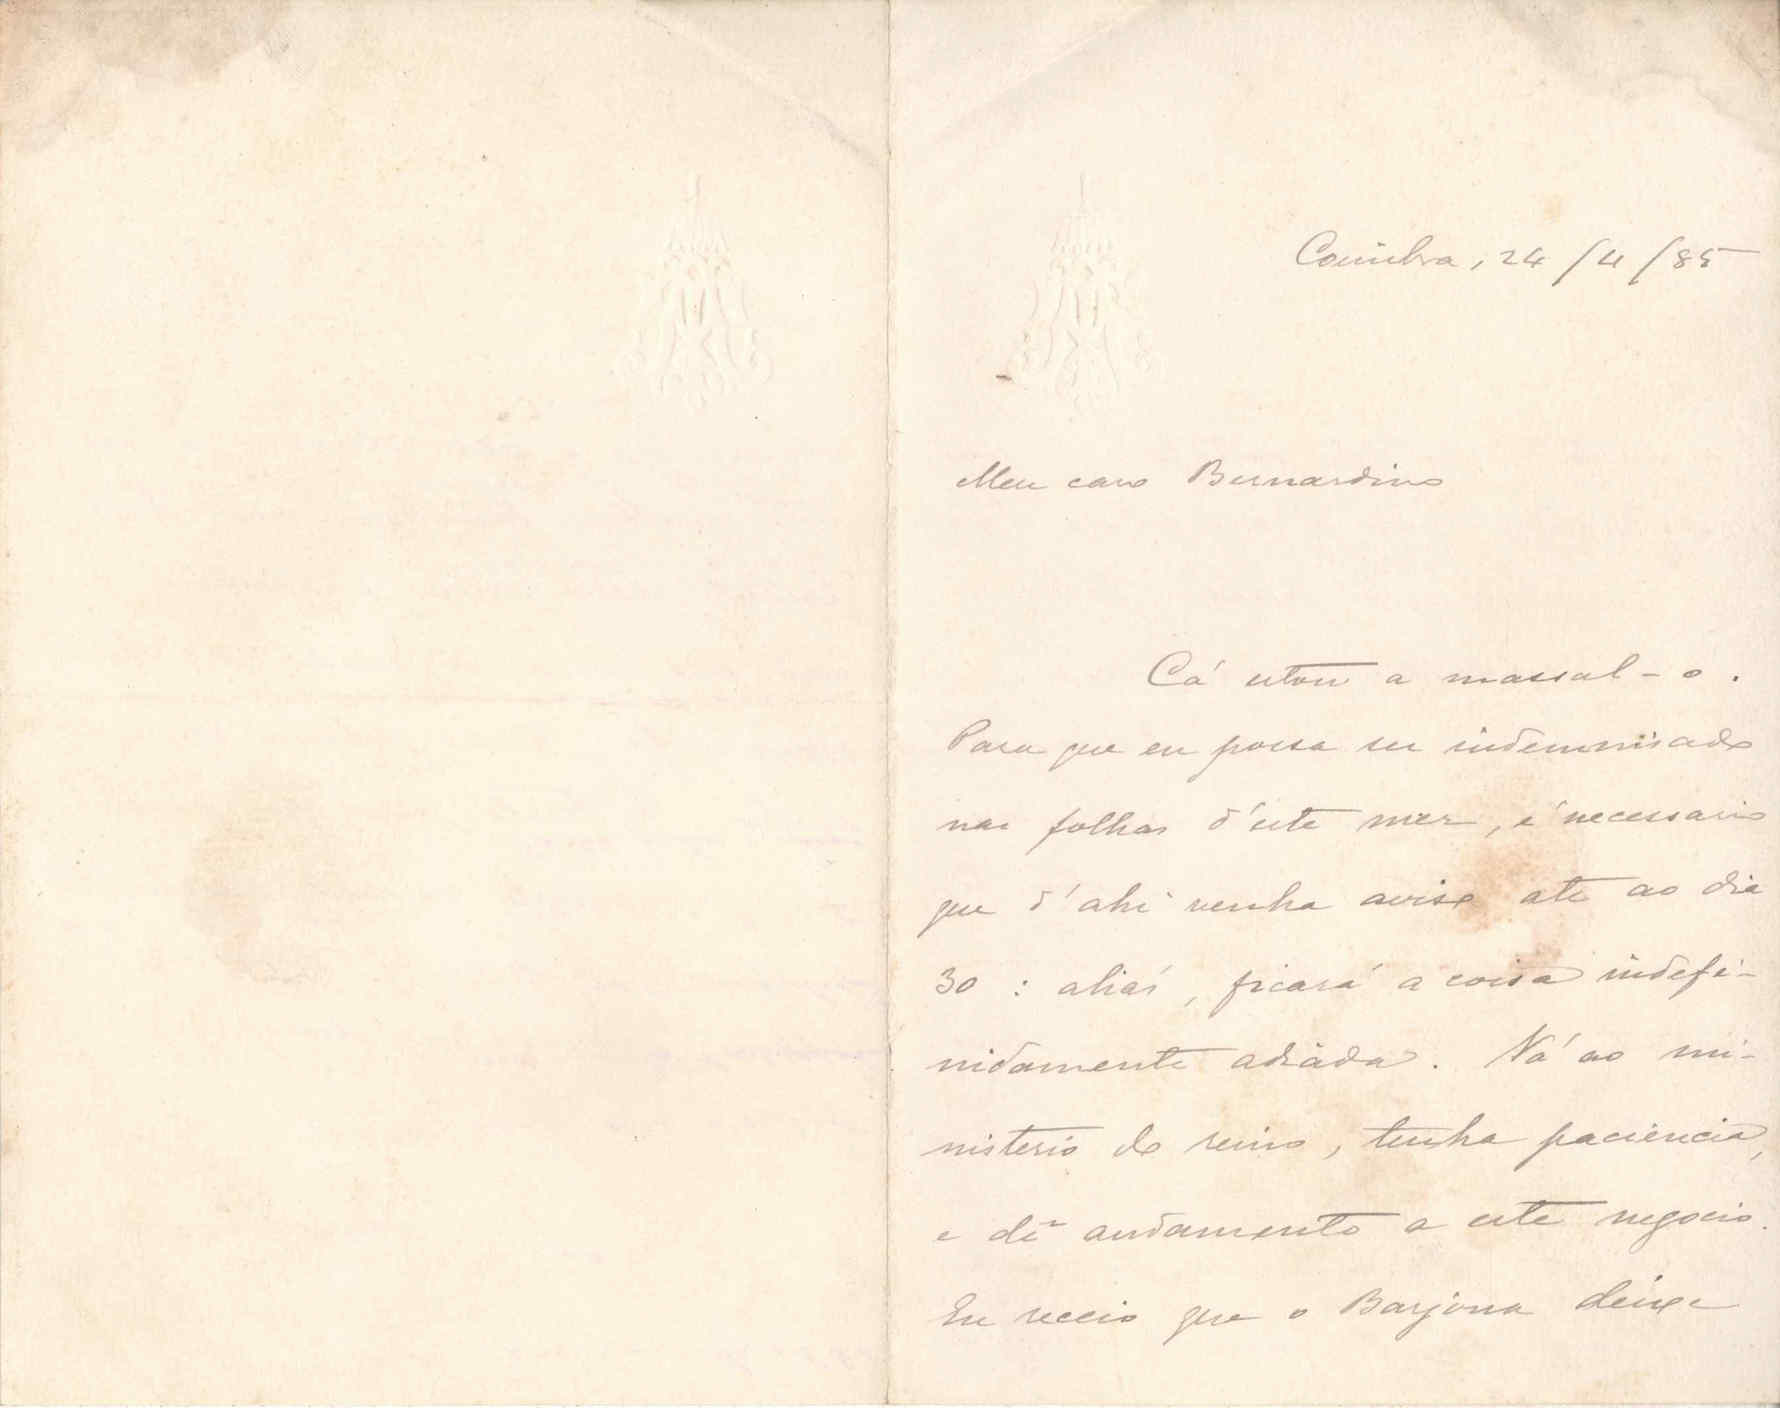 Coimbra, 24/4/85
Meu caro Bernardino
Cá estou a massal-o.
Para que eu possa ser indemnisado
nas folhas d'este mez, é necessario
que d'ahi venha aviso até ao dia
30: aliás, ficará a coisa indefi-
nidamente adiada. Vá ao mi-
nisterio do reino, tenha paciencia,
e dê andamento a este negocio.
Eu receio que o Barjona deixe